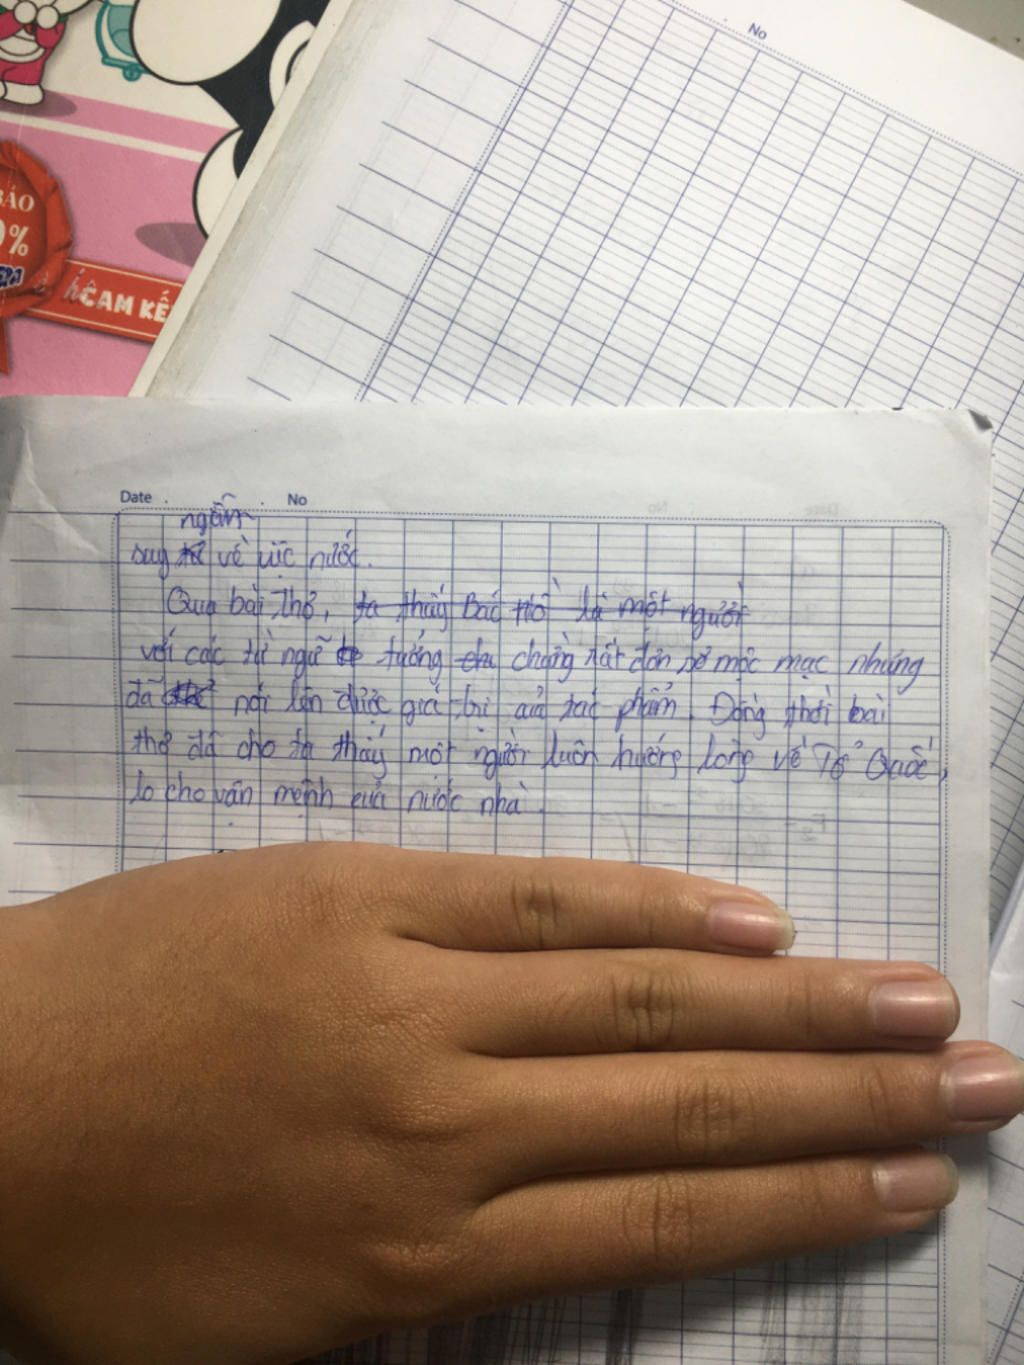 No
BẢO
0%
CAM KẾ
Date . . No
ngẫm
suy về vực nước.
Qua bài thơ, ta thấy Bác Hồ là một người
với các từ ngữ tưởng chừng rất đơn sơ mộc mạc nhưng
đã nói lên được giá trị của tác phẩm. Đồng thời bài
thơ đã cho ta thấy một người luôn hướng lòng về Tổ Quốc,
lo cho vận mệnh của nước nhà.